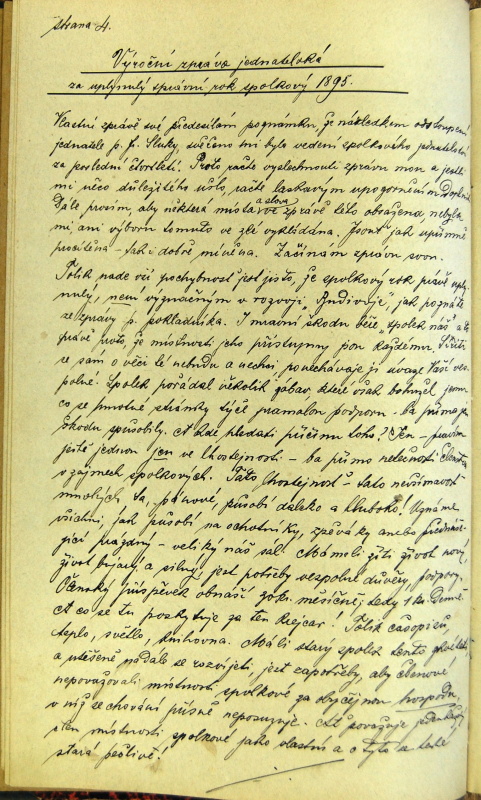 Strana 4.
Výroční zpráva jednatelská
za uplynulý správní rok spolkový 1895.
Vlastní zprávě své předesílám poznámku, že následkem odstoupení
jednatele p. f. Sluky, svěřeno mi bylo vedení spolkového jednatelství
za poslední čtvrtletí. Proto račte vyslechnouti zprávu mou a jestli
mi něco důležitého ušlo, račte laskavým upozorněním doplniti
Dále prosím, aby některá místa a slova ve zprávě této obsažená nebyla
mi, ani výboru tomuto ve zlé vykládána. Jsouť jak upřímně
procítěna – tak i dobře míněna. Začínám zprávu svou.
Tolik nade vší pochybnost jest jisto, že spolkový rok právě uply-
nulý, není význačným v rozvoji „Budivoje", jak poznáte
ze zprávy p. pokladníka. I mravní škodu běře „spolek náš" a to
právě proto, že místnosti jeho přístupny jsou každému.
se sám o věci té nebudu a nechci, ponechávaje ji úvaze Vaší ves-
polné. Spolek pořádal několik zábav, které však bohužel, jemu
co se hmotné stránky týče pramalou podporu – ba přímo
škodu způsobily. A kde hledati příčinu toho? Jen – pravím
ještě jednou jen ve lhostejnosti – ba přímo netečnosti členstva
v zájmech spolkových. Tato lhostejnosť – tato nevšímavosť
mnohých ta, pánové, působí daleko a hluboko! Uznáme
všichni, jak působí na ochotníky, zpěváky anebo přednáše-
jící prázdný – veliký náš sál. Máme-li žíti život nový,
život bujarý a silný, jest potřeby vespolné důvěry, podpory.
Členský příspěvek obnáší 30 kr. měsíčně, tedy 1 kr. denně.
A co se tu poskytuje za ten krejcar! Tolik časopisů,
teplo, světlo, knihovna. Má-li starý spolek tento
a utěšeně nadále se rozvíjeti, jest zapotřeby, aby členové
nepovažovali místnosti spolkové za obyčejnou hospodu,
v níž se chování přísně neposuzuje. Ať považuje jedenkaždý
člen místnosti spolkové jako vlastní a o tyto a také
stará pečlivě!